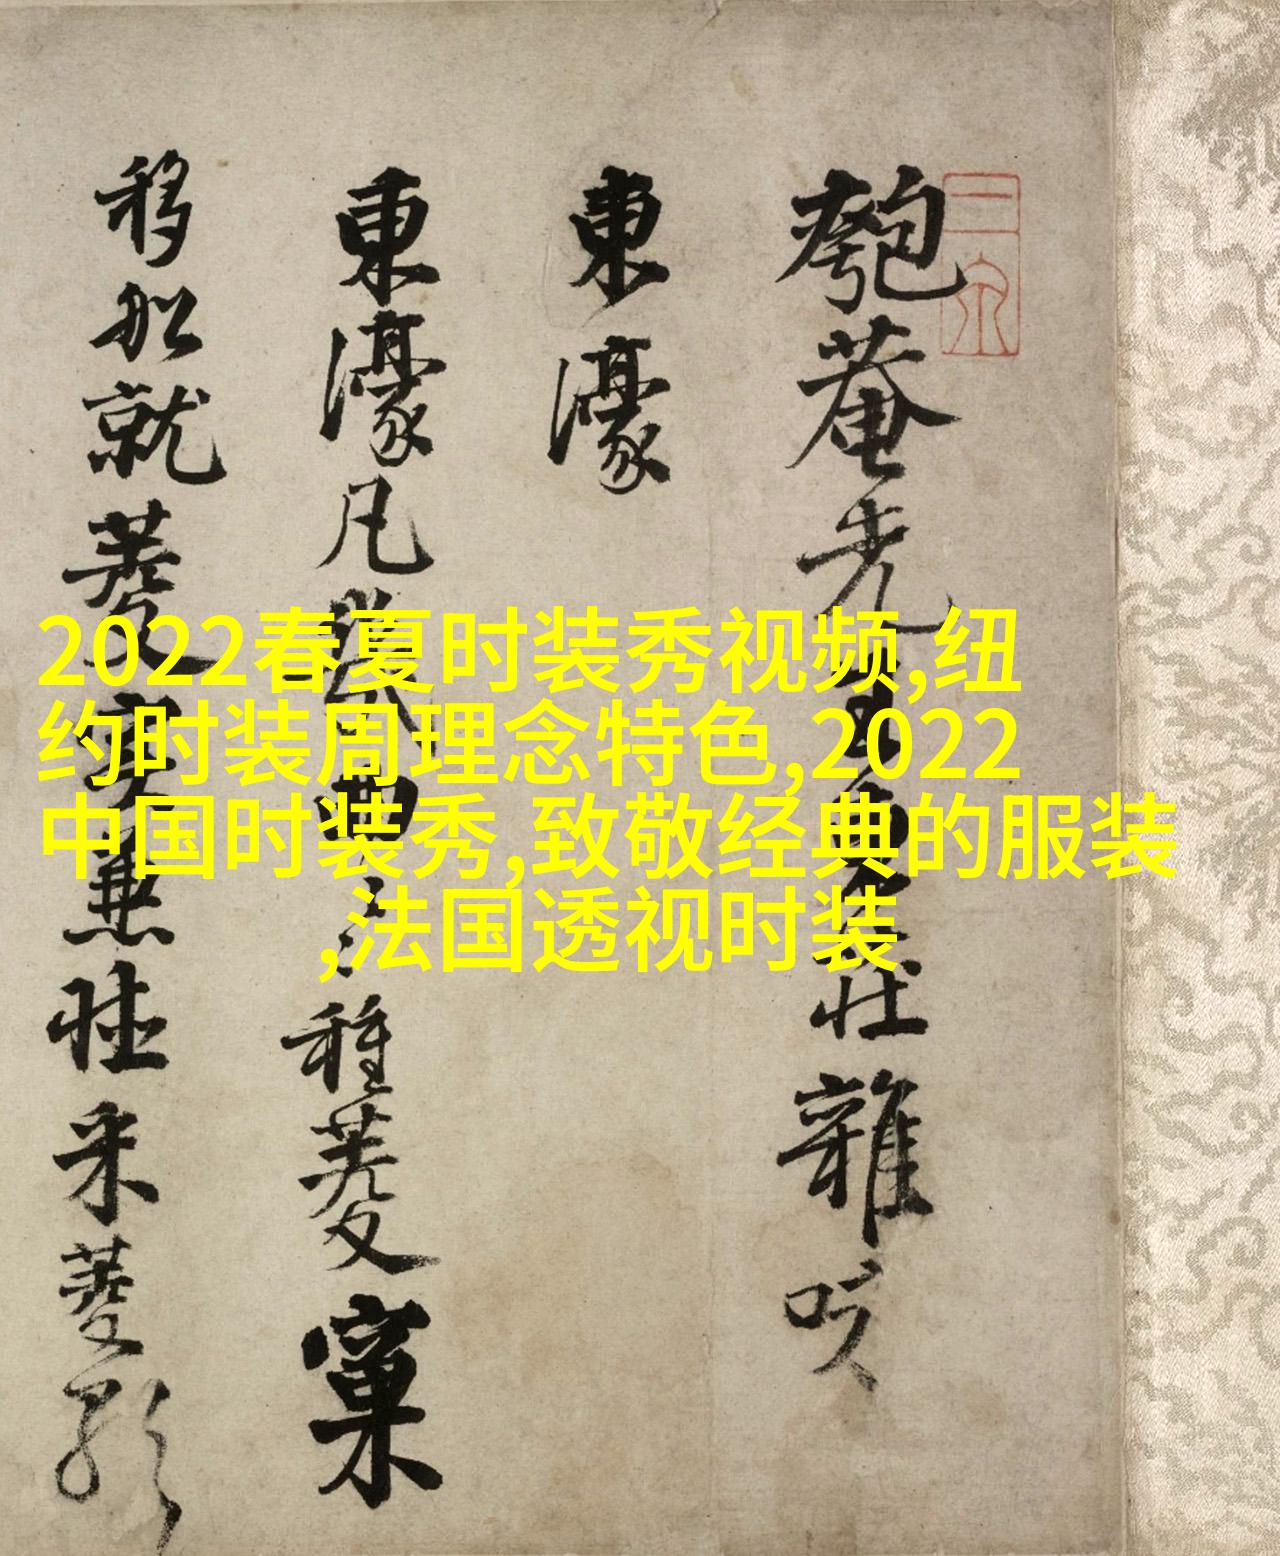 2022春夏时装秀视频,纽
约时装周理念特色,2022
中国时装秀,致敬经典的服装
,法国透视时装
匏菴先生東莊雜咏
東濠
東濠凡幾曲〻種菱窠
移船就菱實兼采菱歌